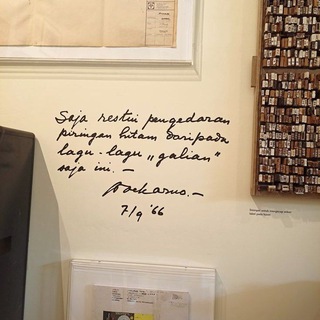 Saja restui pengedaran
piringan hitam daripada
lagu-lagu „galian"
saja ini. —
Soekarno. —
7/9 '66